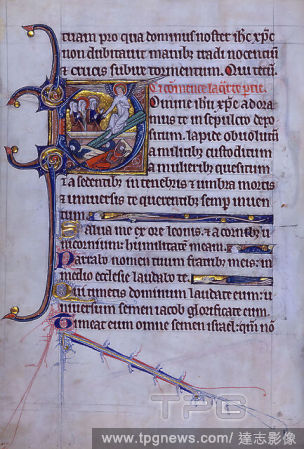 tuam pro qua dominus noster ihc xpc
non dubitauit manibz tradi nocentiu
& crucis subire tormentum. Qui tecu.
Ci comence la q̃rte ptie.
Omine ihu xpe adora
mus te in sepulcro depo
situm. lapide obuolutu
a militibz custoditum
a mulieribz quesitum
& a sedentibz in tenebris & umbra mortis
& uniuersis te querentibz semper inuen
tum
Salua me ex ore leonis. & a cornibz u
nicornium: humilitatem meam.
Narrabo nomen tuum fratribz meis: in
medio ecclesie laudabo te
Qui timetis dominum laudate eum: u
niuersum semen iacob glorificate eum
Timeat eum omne semen israel: qm no
TPG
www.tpgnews.com/ 達志影像